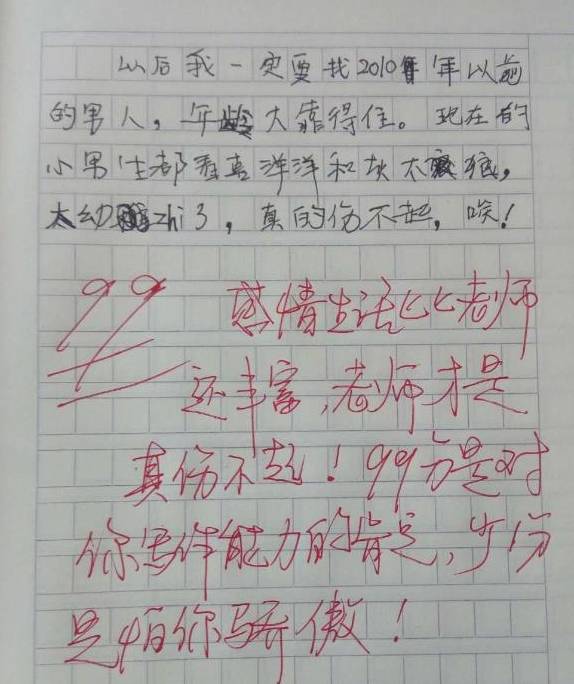 以后我一定要找2010年以前
的男人，年龄大靠得住。现在的
小男生都看喜洋洋和灰太狼，
太幼zhi了，真的伤不起，唉！
99
感情生活比老师
还丰富，老师才是
真伤不起！99分是对
你写作能力的肯定，少1分
是怕你骄傲！